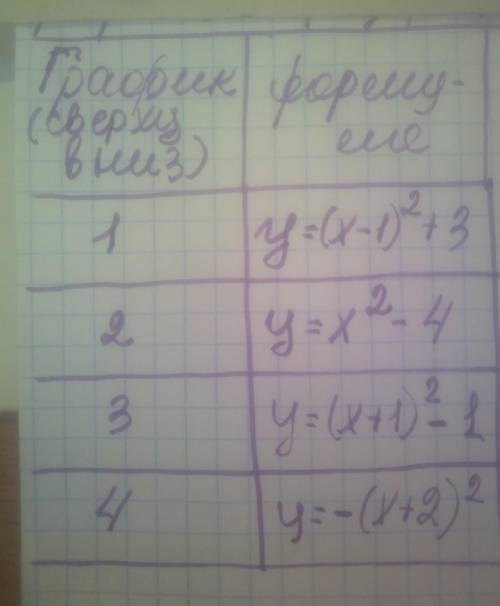 График формул-
(сверху ле
вниз)
1 y=(x-1)²+3
2 y=x²-4
3 y=(x+1)²-1
4 y=-(x+2)²